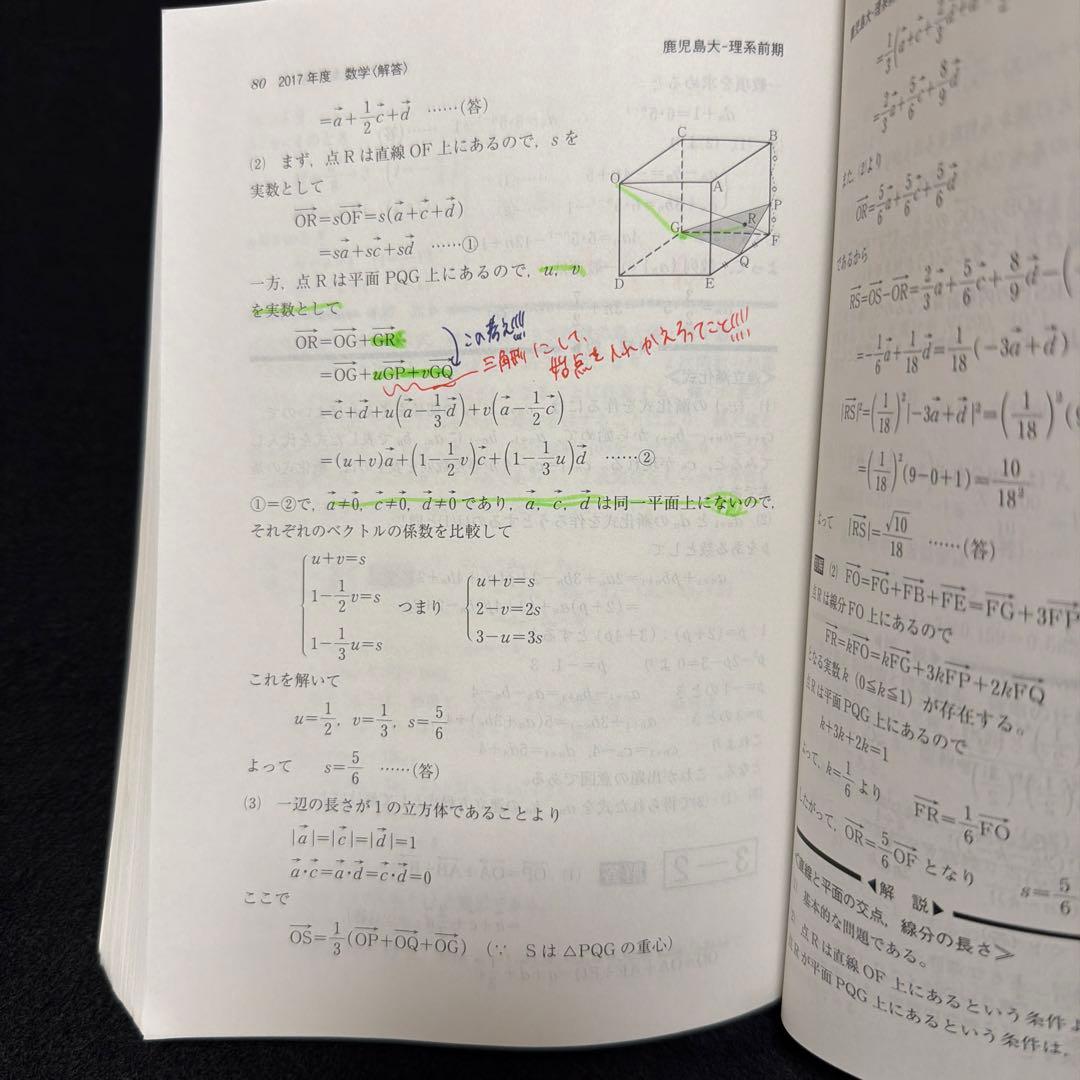 80 2017年度 数学〈解答〉
鹿児島大-理系前期
=a⃗+1/2c⃗+d⃗ ……(答)
(2) まず，点Rは直線OF上にあるので，sを
実数として
OR⃗=sOF⃗=s(a⃗+c⃗+d⃗)
=sa⃗+sc⃗+sd⃗ ……①
一方，点Rは平面PQG上にあるので，u，v
を実数として
OR⃗=OG⃗+GR⃗
=OG⃗+uGP⃗+vGQ⃗
この考え!!!!
三角形にして、
始点を入れかえろってこと!!!!
=c⃗+d⃗+u(a⃗-1/3d⃗)+v(a⃗-1/2c⃗)
=(u+v)a⃗+(1-1/2v)c⃗+(1-1/3u)d⃗ ……②
①=②で，a⃗≠0⃗，c⃗≠0⃗，d⃗≠0⃗であり，a⃗，c⃗，d⃗は同一平面上にないので，
それぞれのベクトルの係数を比較して
{u+v=s
1-1/2v=s
1-1/3u=s
つまり
{u+v=s
2-v=2s
3-u=3s
これを解いて
u=1/2，v=1/3，s=5/6
よって s=5/6 ……(答)
(3) 一辺の長さが1の立方体であることより
|a⃗|=|c⃗|=|d⃗|=1
a⃗・c⃗=a⃗・d⃗=c⃗・d⃗=0
ここで
OS⃗=1/3(OP⃗+OQ⃗+OG⃗) (∵ Sは△PQGの重心)
C
B
O
A
P
R
G
F
Q
D
E
鹿児島大-理系
=1/3(a⃗+c⃗+
=2/3a⃗+5/6c⃗+8/9d⃗
また，(2)より
OR⃗=5/6a⃗+5/6c⃗+5/6d⃗
であるから
RS⃗=OS⃗-OR⃗=2/3a⃗+5/6c⃗+8/9d⃗-(
=-1/6a⃗+1/18d⃗=1/18(-3a⃗+d⃗)
|RS⃗|²=(1/18)²|-3a⃗+d⃗|²=(1/18)²(9
=(1/18)²(9-0+1)=10/18²
よって |RS⃗|=√10/18 ……(答)
(2) FO⃗=FG⃗+FB⃗+FE⃗=FG⃗+3FP⃗
点Rは線分FO上にあるので
FR⃗=kFO⃗=kFG⃗+3kFP⃗+2kFQ⃗
となる実数k (0≦k≦1) が存在する。
点Rは平面PQG上にあるので
k+3k+2k=1
よって，k=1/6より FR⃗=1/6FO⃗
したがって，OR⃗=5/6OF⃗となり s=5/6
◀解 説▶
≪直線と平面の交点，線分の長さ≫
基本的な問題である。
点Rは直線OF上にあるという条件よ
点Rが平面PQG上にあるという条件は，